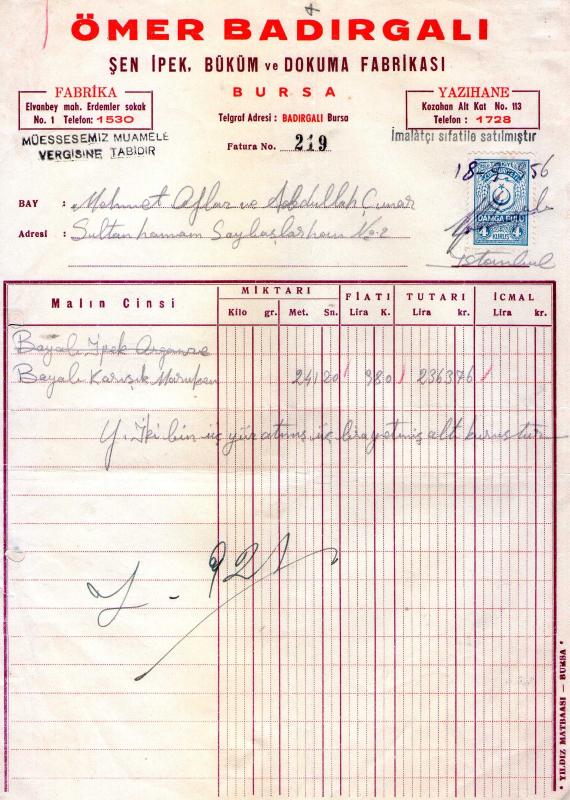 ÖMER BADIRGALI
ŞEN İPEK, BÜKÜM ve DOKUMA FABRİKASI
BURSA
FABRİKA
Elvanbey mah. Erdemler sokak
No. 1 Telefon: 1530
YAZIHANE
Kozahan Alt Kat No. 113
Telefon : 1728
Telgraf Adresi : BADIRGALI Bursa
MÜESSESEMİZ MUAMELE
VERGİSİNE TABİDİR
Fatura No. 219
İmalâtçı sıfatile satılmıştır
DAMGA PULU
4 KURUŞ 4
BAY : Mehmet Aflar ve Abdullah Çınar
Adresi : Sultanhamam Saybaşlarhan No-2
İstanbul
Malın Cinsi
MİKTARI
FİATI
TUTARI
İCMAL
Kilo gr. Met. Sn. Lira K. Lira kr. Lira kr.
Boyalı İpek Organze
Boyalı Karışık Maruken 241 20 980 2363 76
Y. İki bin üç yüz atmış üç lira yetmiş altı kuruştur
* YILDIZ MATBAASI — BURSA *